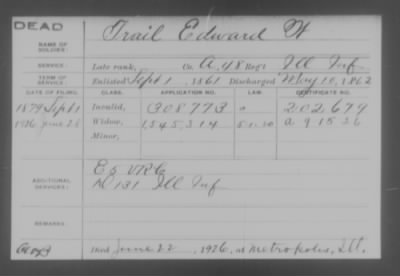 DEAD
NAME OF SOLDIER: Trail Edward W
SERVICE: Late rank, Co. A, 48 Reg't Ill Inf
TERM OF SERVICE: Enlisted Sept 1 1861 Discharged May 10, 1862
DATE OF FILING. CLASS. APPLICATION NO. LAW. CERTIFICATE NO.
1879 Sept 1 Invalid, 308773 202679
1926 June 28 Widow, 1,545,314 A 9 15 26
Minor,
ADDITIONAL SERVICES: E 5 VRC
D 131 Ill Inf
REMARKS:
Died June 22, 1926, at Metropolis, Ill.